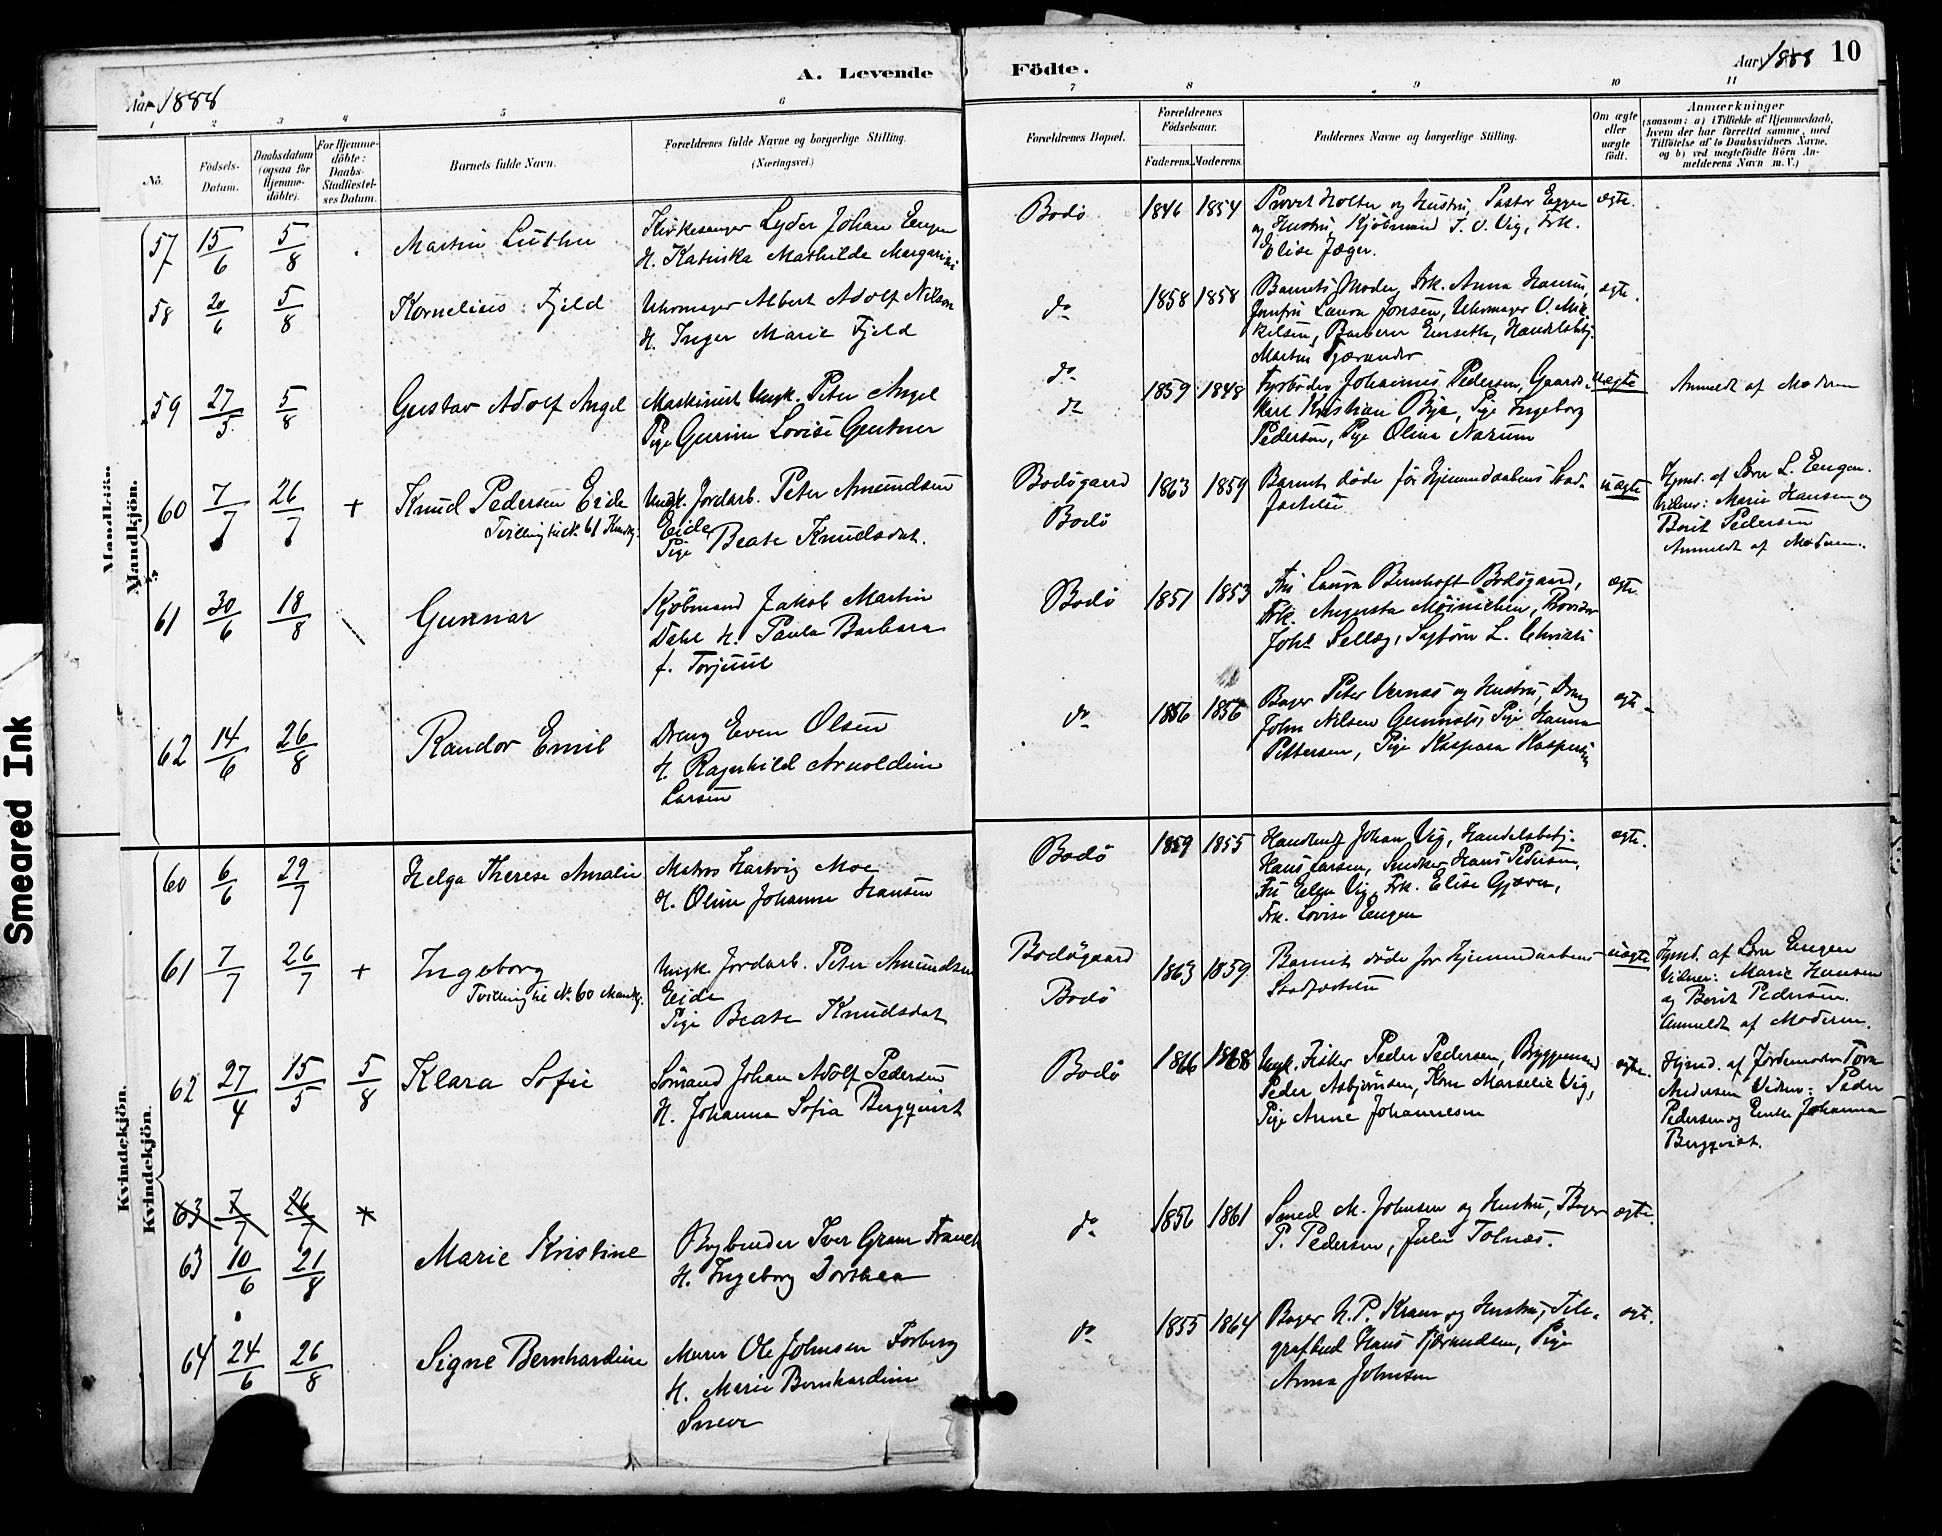 A. Levende
Födte.
Aar 1888
Aar 1888
10
1 2 3 4 5 6
7 8 9 10 11
Nö.
Födsels-
Datum.
Daabsdatum
(ogsaa for
Hjemme-
döbte).
For Hjemme-
döbte:
Daabs-
Stadfæstel-
ses Datum.
Barnets fulde Navn.
Forældrenes fulde Navne og borgerlige Stilling.
(Næringsvei.)
Forældrenes Bopæl.
Forældrenes
Födselsaar.
Faderens. Moderens.
Faddernes Navne og borgerlige Stilling.
Om ægte
eller
uægte
födt.
Anmærkninger
(saasom: a) i Tilfælde af Hjemmedaab,
hvem der har forrettet samme, med
Tilföielse af to Daabsvidners Navne,
og b) ved uægtefödte Börn An-
melderens Navn m. V.)
Mandkjön.
Mandkjön.
57 15/6 5/8
Martin Luther
Kirkesanger Lyder Johan Engen
H. Katinka Mathilde Margarini
Bodö 1846 1854
Provst Holter og Hustru, Pastor Eggen
og Hustru, Kjöbmand T. O. Vig, Frk.
Elise Jæger.
ægte.
58 20/6 5/8
Kornelius Fjeld
Uhrmager Albert Adolf Nilsen
H. Inger Marie Fjeld
do 1858 1858
Barnets Moder, Frk. Anna Hansen,
Jomfru Laura Jonsen, Uhrmager O. Mik-
kelsen, Barberer Enseth, Handelsbetj.
Martin Tjærandsr
ægte.
59 27/5 5/8
Gustav Adolf Angel
Maskinist Ungk. Peter Angel
Pige Gurine Lovise Gentner
do
do 1859 1848
Fyrböder Johannes Pedersen, Gaardb.
Karl Kristian Bye, Pige Ingeborg
Pedersen, Pige Olina Narum
uægte
Anmeldt af Moderen
60 7/7 26/7 +
Knud Pedersen Eide
Tvilling til No. 61 Kvindkj.
Ungk. Jordarb. Peter Amundsen
Eide
Pige Beate Knudsdat.
Bodögaard
Bodö
1863 1859
Barnet döde för Hjemmedaabens Stad-
fæstelse
uægte
Hjmd. af Sörn L. Engen.
Vidner: Marie Hansen og
Berit Pedersen
Anmeldt af Moderen.
61 30/6 18/8
Gunnar
Kjöbmand Jakob Martin
Dahl H. Paula Barbara
f. Torjuul
Bodö 1851 1853
Fru Laura Bernhoft Bodögaard,
Frk. Augusta Möinichen, Provisor
Johs Selleg, Sagförer L. Christi
ægte.
62 14/6 26/8
Randor Emil
Dreng Even Olsen
H. Ragnhild Arnoldine
Larsen
do 1856 1856
Bager Peter Vernæs og Hustru, Dreng
John Nilsen Gunnæs, Pige Hanna
Pettersen, Pige Kaspara Kaspersen
ægte.
Kvindekjön.
Kvindekjön.
60 6/6 29/7
Helga Therese Amalie
Matros Hartvig Moe
H. Oline Johanne Hansen
Bodö 1859 1855
Handlende Johan Vig, Handelsbetj.
Hans Larsen, Snedker Hans Pedersen,
Fru Ellen Vig, Frk. Elise Gjæver,
Frk. Lovise Engen
ægte.
61 7/7 26/7 +
Ingeborg
Tvilling til No. 60 Mandkj.
Ungk. Jordarb. Peter Amundsen
Eide
Pige Beate Knudsdat
Bodögaard
Bodö
1863 1859
Barnet döde för Hjemmedaabens
Stadfæstelse
uægte
Hjmd. af Sörn Engen
Vidner: Marie Hansen
og Berit Pedersen.
Anmeldt af Moderen.
62 27/4 15/5 5/8
Klara Sofie
Sömand Johan Adolf Pedersen
H. Johanna Sofia Bergqvist
Bodö 1866 1868
Ungk. Fisker Peder Pedersen, Bryggemand
Peder Asbjörnsen, Kone Marselie Vig,
Pige Anne Johannesen
ægte.
Hjmd. af Jordemoder Tora
Andersen Vidner: Peder
Pedersen og Enke Johanna
Bergqvist.
63 7/7 26/7 +
63 10/6 21/8
Marie Kristine
Bogbinder Iver Gram Franck
H. Ingeborg Dorthea
do 1856 1861
Smed M. Johnsen og Hustru, Bager
P. Pedersen, Julie Tolnæs.
ægte.
64 24/6 26/8
Signe Bernhardine
Murer Ole Johnsen Forberg
H. Marie Bernhardine
Sneve
do 1855 1864
Bager H. P. Kran og Hustru, Tele-
grafbud Hans Tjærandsen, Pige
Anna Johnsen
ægte.
Smeared Ink